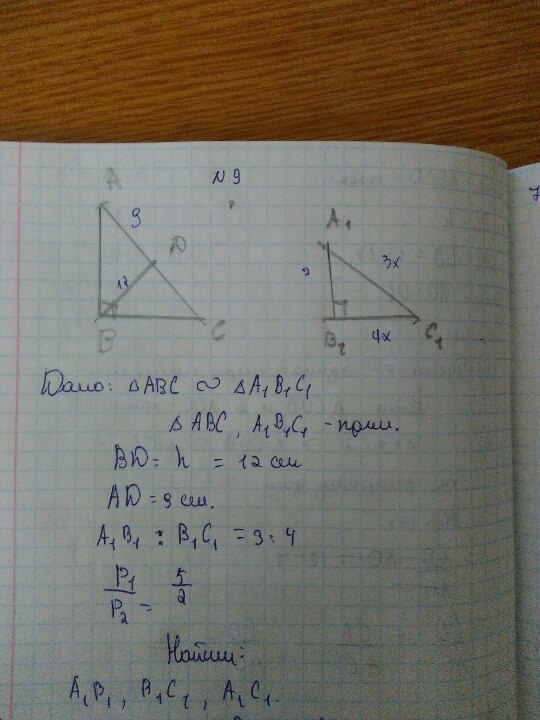 N 9
A
9
D
12
B
C
A₁
3x
B₁
4x
C₁
Дано: △ABC ∾ △A₁B₁C₁
△ABC, A₁B₁C₁ - прям.
BD = h = 12 см
AD = 9 см.
A₁B₁ : B₁C₁ = 3 : 4
P₁/P₂ = 5/2
Найти:
A₁B₁, B₁C₁, A₁C₁.